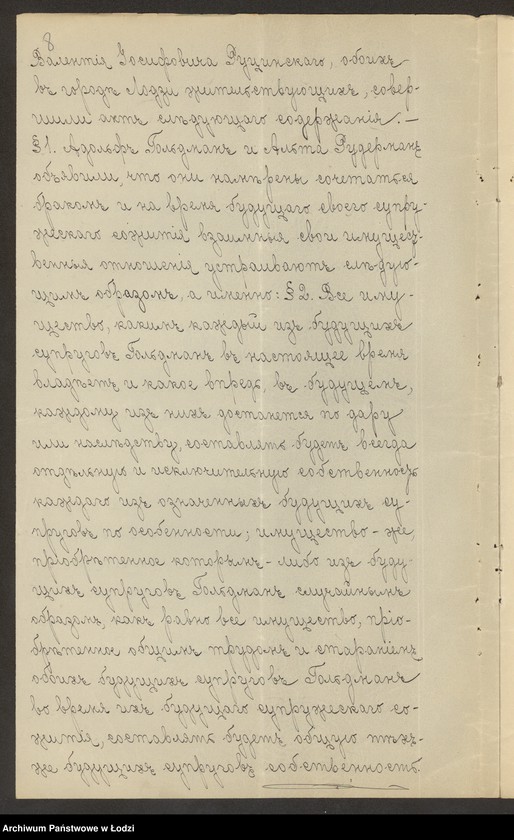 8
Валентія Іосифовича Рущинскаго, обоихъ
въ городѣ Лодзи жительствующихъ, совер-
шили актъ слѣдующаго содержанія. —
§ 1. Адольфъ Гольдманъ и Альта Рудерманъ
объявили, что они намѣрены сочетаться
бракомъ и на время будущаго своего супру-
жескаго сожитія взаимныя свои имущест-
венныя отношенія устраиваютъ слѣдую-
щимъ образомъ, а именно: § 2. Все иму-
щество, какимъ каждый изъ будущихъ
супруговъ Гольдманъ въ настоящее время
владѣетъ и какое впредь, въ будущемъ,
каждому изъ нихъ достанется по дару
или наслѣдству, составлять будетъ всегда
отдѣльную и исключительную собственность
каждаго изъ означенныхъ будущихъ су-
пруговъ по особенности; имущество-же,
пріобрѣтенное которымъ-либо изъ буду-
щихъ супруговъ Гольдманъ случайнымъ
образомъ, какъ равно все имущество, пріо-
брѣтенное общимъ трудомъ и стараніемъ
обоихъ будущихъ супруговъ Гольдманъ
во время ихъ будущаго супружескаго со-
житія, составлять будетъ общую тѣхъ-
же будущихъ супруговъ собственность.
Archiwum Państwowe w Łodzi